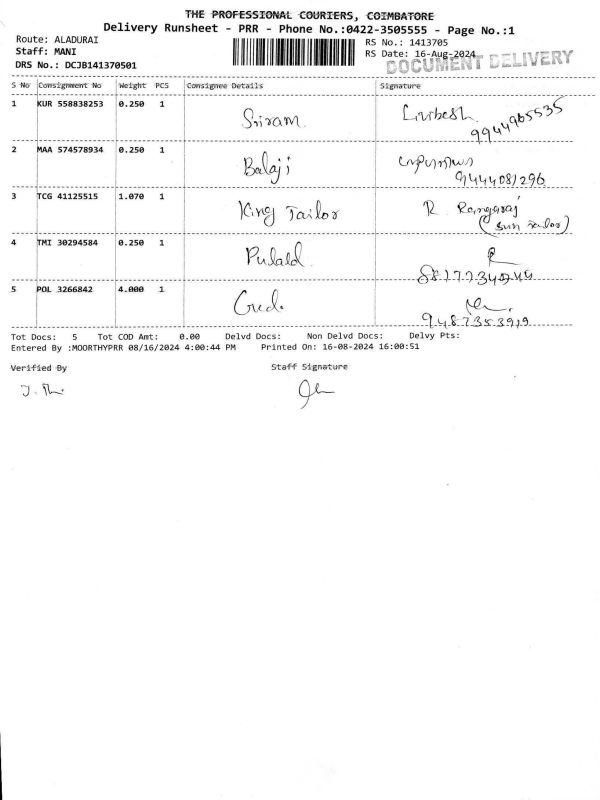 THE PROFESSIONAL COURIERS, COIMBATORE
Delivery Runsheet - PRR - Phone No.:0422-3505555 - Page No.:1
Route: ALADURAI RS No.: 1413705
Staff: MANI RS Date: 16-Aug-2024
DOCUMENT DELIVERY
DRS No.: DCJB141370501
S No Consignment No Weight PCS Consignee Details Signature
1 KUR 558838253 0.250 1 Sriram
9944905535
2 MAA 574578934 0.250 1 Balaji
9444081296
3 TCG 41125515 1.070 1 King Tailor R. Rangaraj
(Sun Tailor)
4 TMI 30294584 0.250 1
5 POL 3266842 4.000 1
9487353919
Tot Docs: 5 Tot COD Amt: 0.00 Delvd Docs: Non Delvd Docs: Delvy Pts:
Entered By :MOORTHYPRR 08/16/2024 4:00:44 PM Printed On: 16-08-2024 16:00:51
Verified By Staff Signature